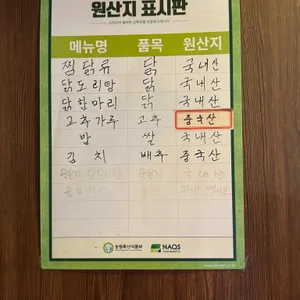 원산지 표시판
메뉴명 품목 원산지
찜닭류 닭 국내산
닭도리탕 닭 국내산
닭한마리 닭 국내산
고추가루 고추 중국산
밥 쌀 국내산
김치 배추 중국산
농림축산식품부 NAQS